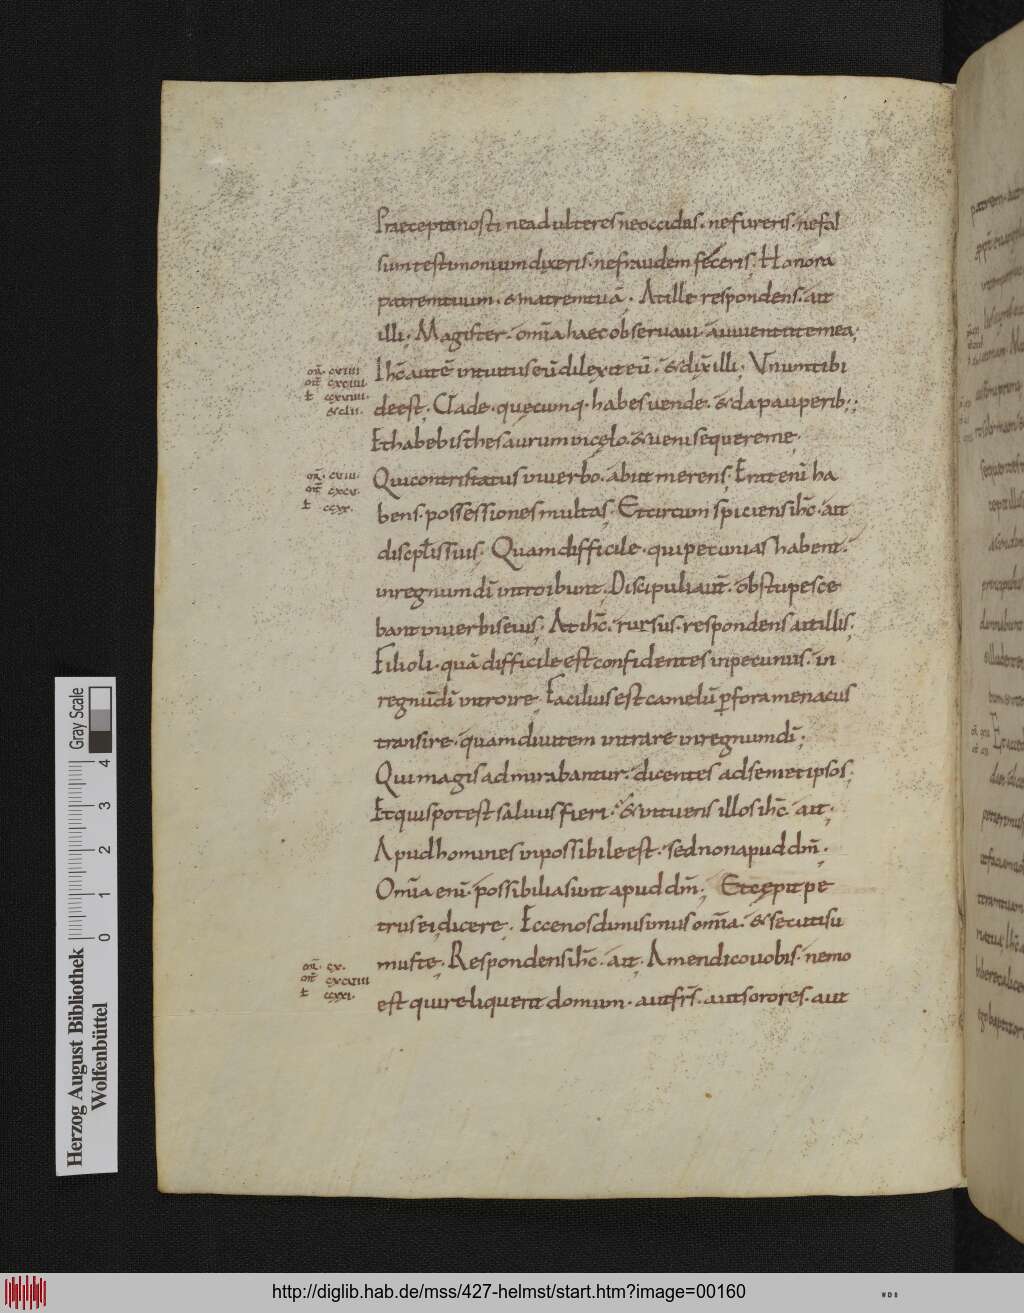 Praecepta nosti ne adulteres ne occidas. ne fureris. ne fal
sum testimonium dixeris. ne fraudem feceris; Honora
patrem tuum. & matrem tuā; At ille respondens. ait
illi; Magister. om̅ia haec observavi. á iuventute mea;
Ihc̅ autē intuitus eū dilexit eū. & dix̅ illi; Unum tibi
deest; Uade. quęcumq. habes uende. & da pauperib;;
Et habebis thesaurum in cęlo. & veni sequere me;
Qui contristatus in verbo. abiit merens; Erat eni̅ ha
bens. possessiones multas; Et circumspiciens ihc̅. ait
discipl̅is suis; Quam difficile. qui pecunias habent.
in regnum dī introibunt. Discipuli aut̅. obstupesce
bant in verbis eius; At ihc̅. rursus. respondens ait illis;
Filioli. quā difficile est confidentes in pecuniis. in
regnū dī introire; Facilius est camelū p̱ foramen acus
transire. quam divitem intrare in regnum dī;
Qui magis admirabantur. dicentes ad semet ipsos;
Et quis potest salvus fieri. & intuens illos ihc̅ ait;
Apud homines inpossibile est. sed non apud dm̅;
Om̅ia eni̅. possibilia sunt apud dm̅; Et cępit pe
trus ei dicere; Ecce nos dimisimus om̅ia. & secuti su
mus te; Respondens ihc̅. ait; Amen dico vobis. nemo
est qui reliquerit domum. aut fr̅s. aut sorores. aut
m̅r. cviiii
mt̅. cxciiii
l ccxviiii
& clii.
m̅r. cviiii.
mt̅ cxcv.
l ccxx.
m̅r. cx.
mt̅ cxcviiii
l ccxxi.
Herzog August Bibliothek
Wolfenbüttel
Gray Scale
0 1 2 3 4
http://diglib.hab.de/mss/427-helmst/start.htm?image=00160
WDB